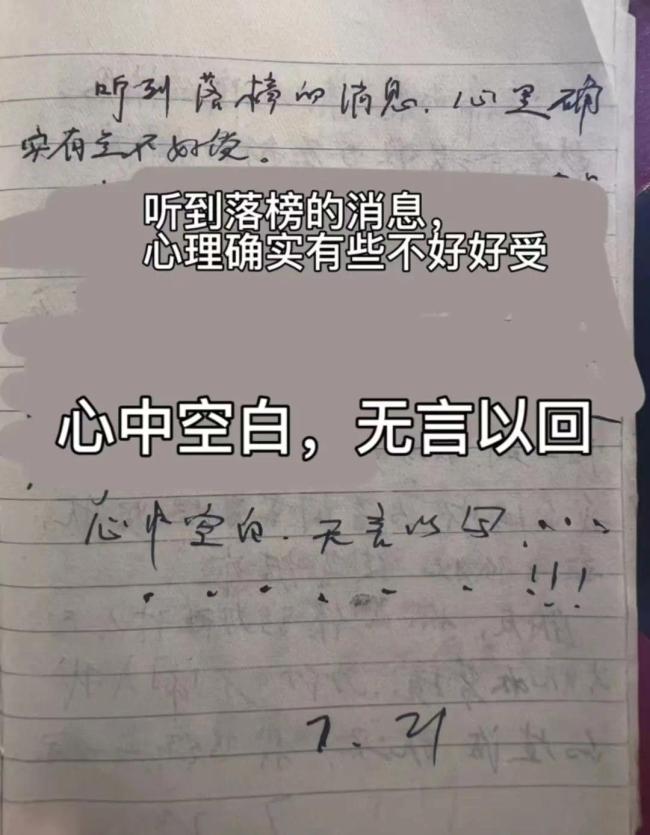 听到落榜的消息,心里确
实有些不好受。
听到落榜的消息，
心理确实有些不好好受
心中空白，无言以回
心中空白.无言以写....
. . . . . . !!!
7.21